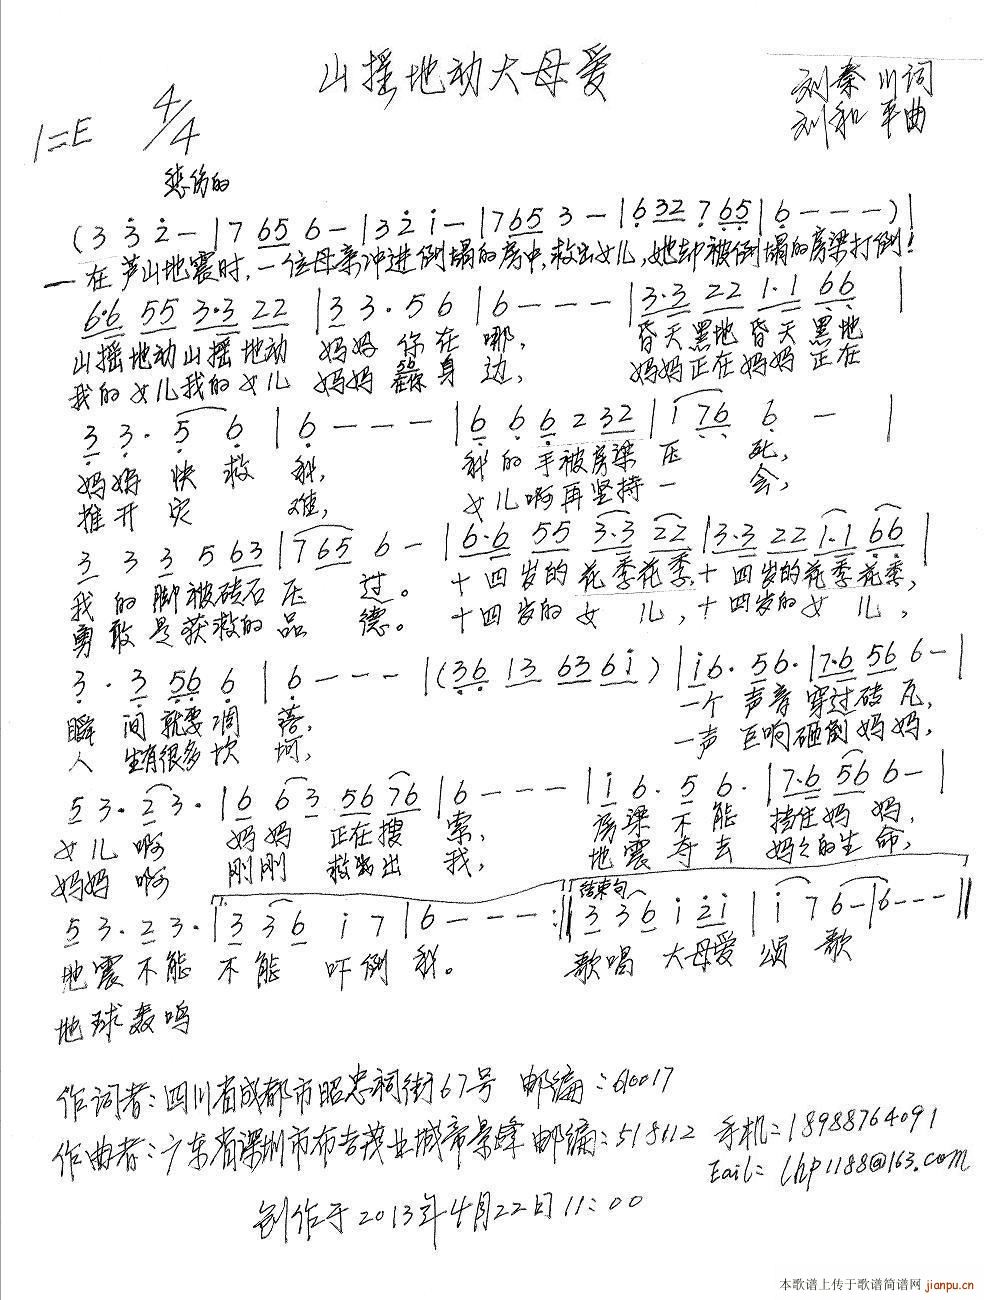 山摇地动大母爱
刘秦川词
刘和平曲
1=E 4/4
悲伤的
(3 3 2 - | 7 65 6 - | 3 2 i - | 7 65 3 - | 6 32 7 65 | 6 - - - ) |
一在芦山地震时,一位母亲冲进倒塌的房中,救出女儿,她却被倒塌的房梁打倒!
6·6 55 3·3 22 | 3 3 · 5 6 | 6 - - - | 3·3 22 1·1 66 |
山摇地动山摇地动 妈妈你在哪, 昏天黑地昏天黑地
我的女儿我的女儿 妈妈在身边, 妈妈正在妈妈正在
3 3 · 5 6 | 6 - - - | 6 6 6 2 32 | i 76 6 - |
妈妈快救我, 我的手被房梁压死,
推开灾难, 女儿啊再坚持一会,
3 3 3 5 63 | 7 65 6 - | 6·6 55 3·3 22 | 3·3 22 1·1 66 |
我的脚被砖石压过。十四岁的花季花季,十四岁的花季花季,
勇敢是获救的品德。十四岁的女儿,十四岁的女儿,
3 · 3 56 6 | 6 - - - | (36 13 63 6i) | i6· 56· | 7·6 56 6 - |
瞬间就要凋落, 一个声音穿过砖瓦,
人生有很多坎坷, 一声巨响砸倒妈妈,
5 3 · 2 3 · | 6 6 3 56 76 | 6 - - - | i 6 · 5 6 · | 7·6 56 6 - |
女儿啊 妈妈正在搜索, 房梁不能挡住妈妈,
妈妈啊 刚刚救出我, 地震夺去妈妈的生命,
结束句
5 3 · 2 3 · | 3 3 6 i 7 | 6 - - - :‖ 3 3 6 i 2i | i 7 6 - | 6 - - - ‖
地震不能不能吓倒我。 歌唱大母爱颂歌
地球轰鸣
作词者:四川省成都市昭忠祠街67号 邮编:610017
作曲者:广东省深圳市布吉茂业城帝景峰 邮编:518112 手机:18988764091
Eail: lhp1188@163.com
创作于2013年4月22日11:00
本歌谱上传于歌谱简谱网 jianpu.cn